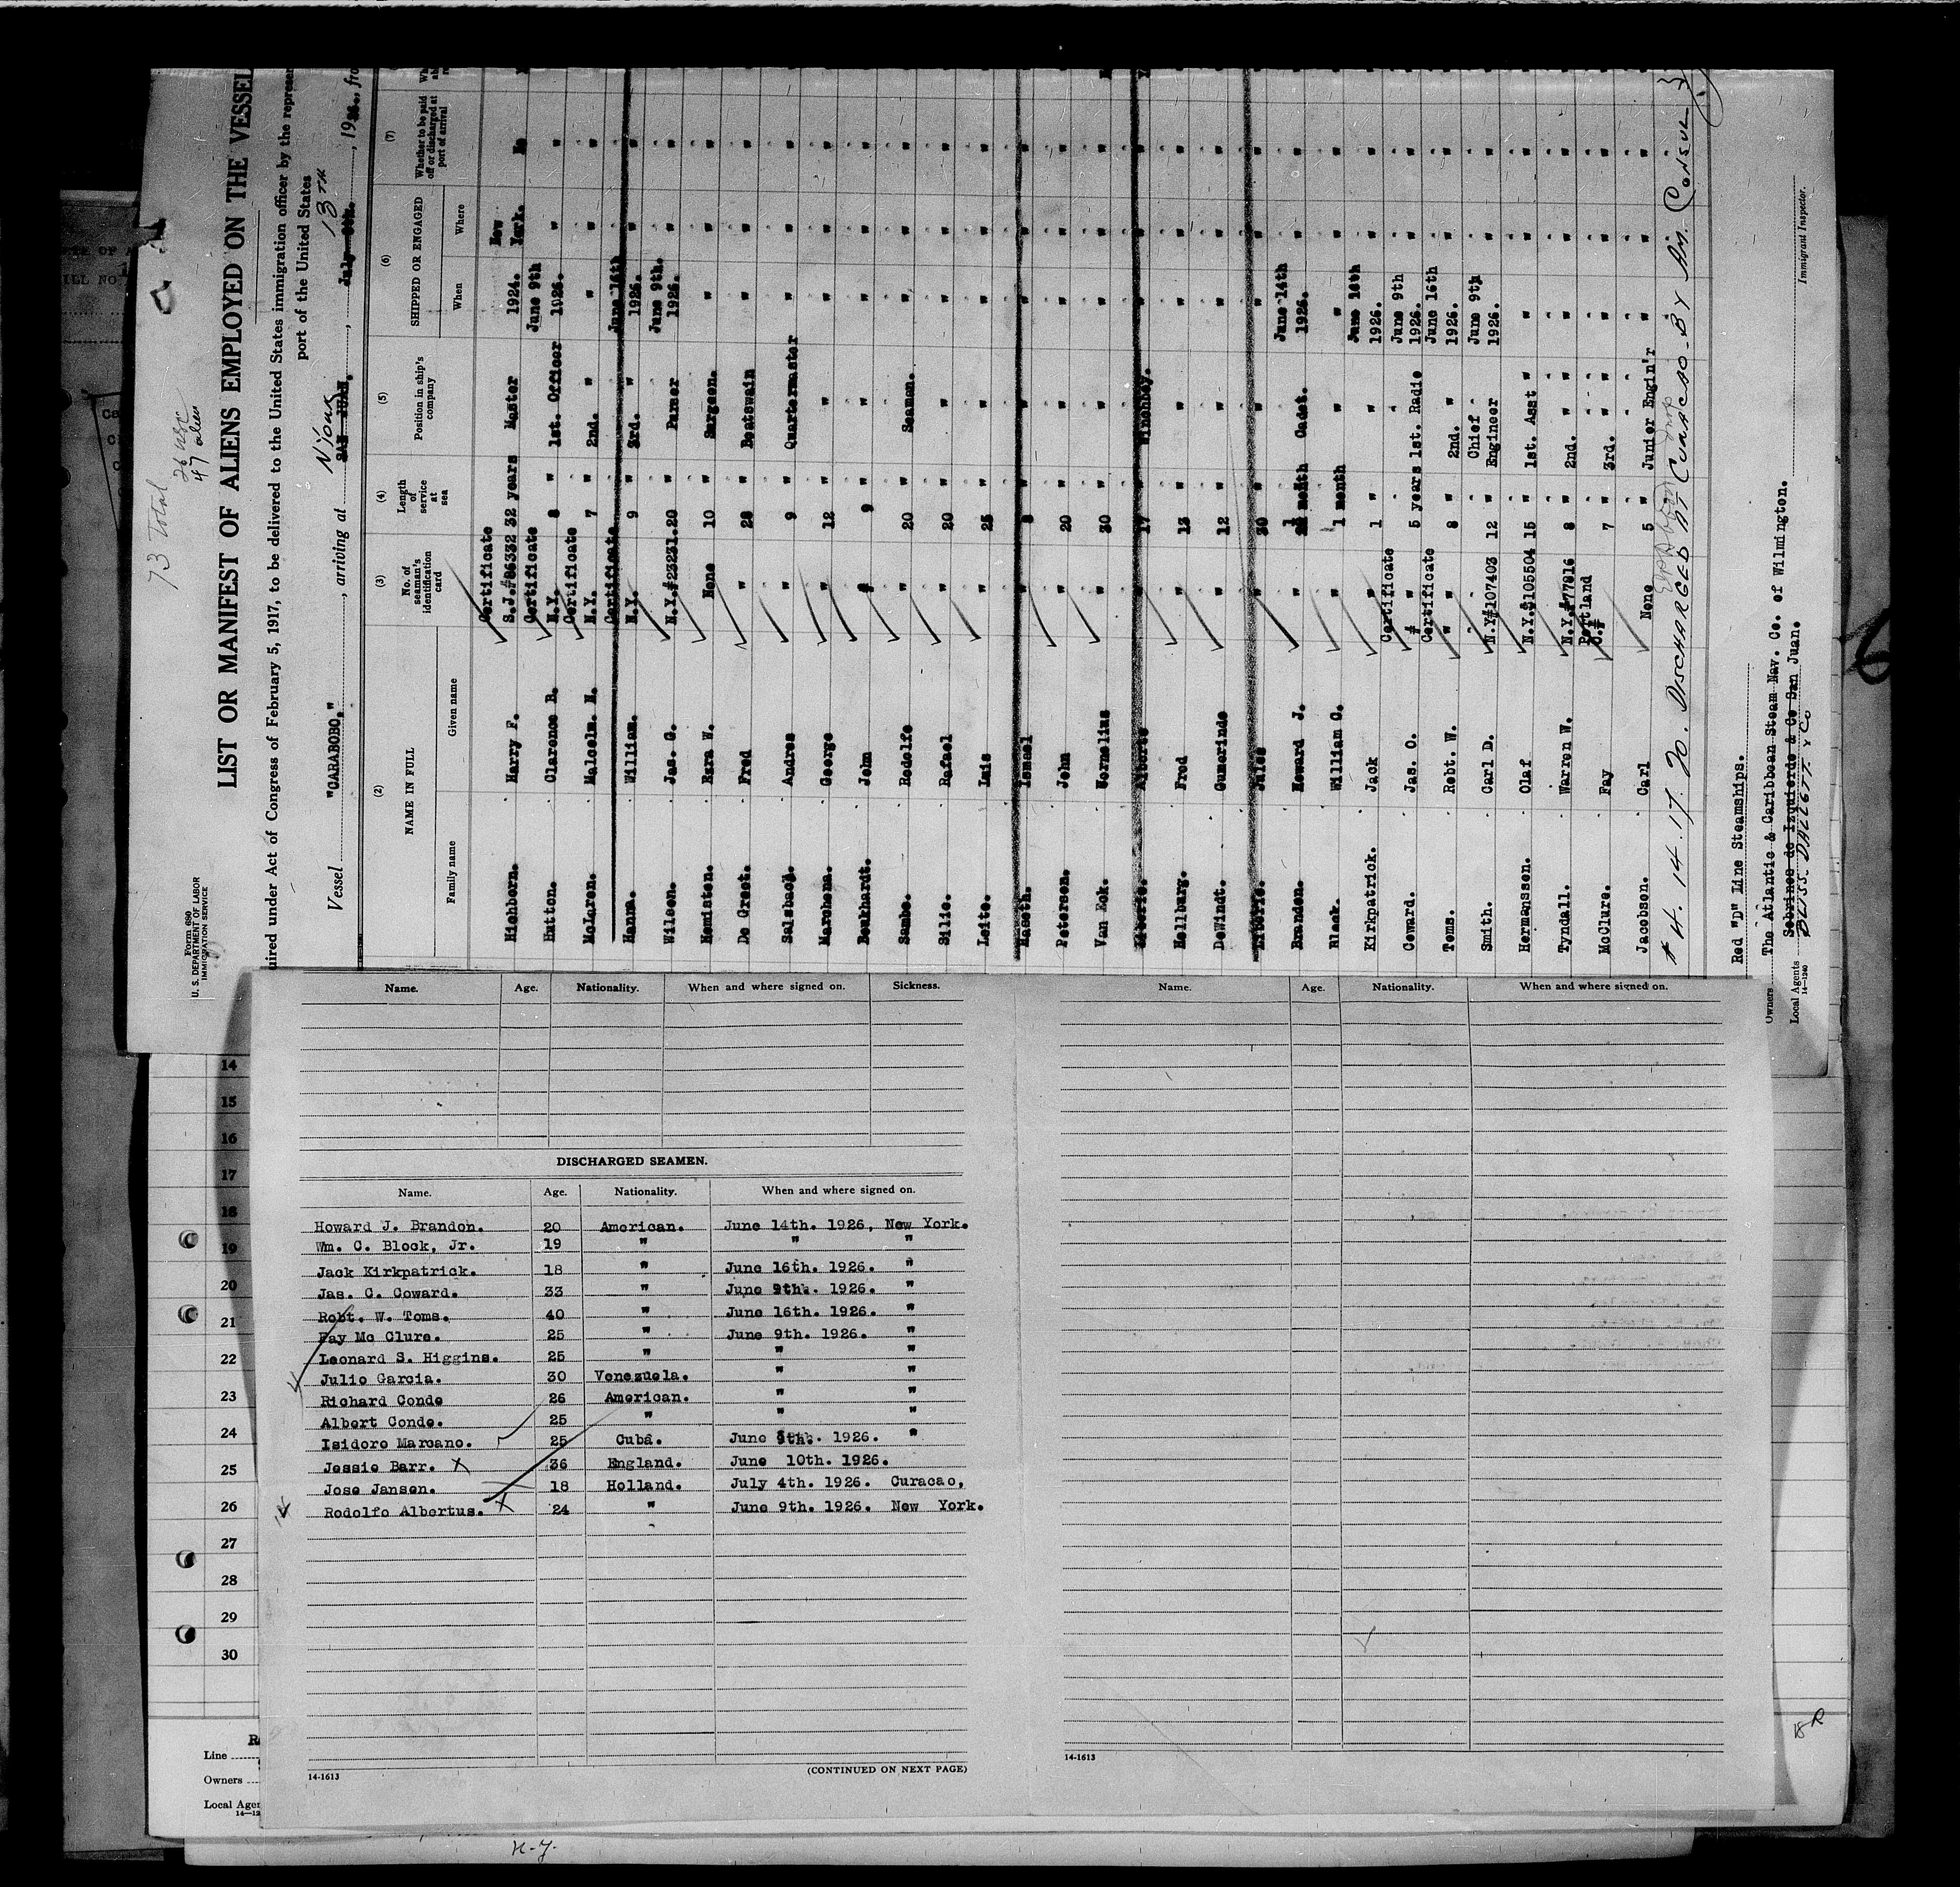 73 Total
47 alien
Form 680
U. S. DEPARTMENT OF LABOR
IMMIGRATION SERVICE
LIST OR MANIFEST OF ALIENS EMPLOYED ON THE VESSEL
uired under Act of Congress of February 5, 1917, to be delivered to the United States immigration officer by the represen
port of the United States
Vessel "CARABOBO," , arriving at SAN JUAN. N York , July 13TH , 19 , fro
(2) (3) (4) (5) (6) (7)
NAME IN FULL
Family name Given name
No. of seaman's identification card
Length of service at sea
Position in ship's company
SHIPPED OR ENGAGED
When Where
Whether to be paid off or discharged at port of arrival
Hichborn. Harry F. Certificate S.J.#86332 32 years Master 1924. New York. No
Hutton. Clarence B. Certificate N.Y. 8 " 1st. Officer June 9th 1926. " "
McLoren. Malcolm. N. Certificate N.Y. 7 " 2nd. " " " "
Hanna. William. Certificate N.Y. 9 " 3rd. " June 16th 1926. " "
Wilson. Jas. G. N.Y.#23231. 20 " Purser June 9th. 1926. " "
Hemiston. Ezra W. None 10 " Surgeon. " " "
De Groot. Fred " 28 " Boatswain " " "
Salsbach. Andres " 9 " Quartermaster " " "
Marchena. George " 12 " " " " "
Beukhardt. John " 9 " " " " "
Sambo. Rodolfo " 20 " Seaman. " " "
Silie. Rafael " 20 " " " " "
Leito. Luis " 25 " " " " "
Maseth. Ismael " 8 " " " " "
Peterson. John " 20 " " " " "
Van Eck. Cornelius " 30 " " " " "
Alberto " 17 " Winchboy. " " "
Hellburg. Fred " 13 " " " " "
DeWindt. Gumerindo " 12 " " " " "
Jules " 30 " " " " "
Brandon. Howard J. " 1 month Cadet. June 14th 1926. " "
Black. William C. " 1 month " " " "
Kirkpatrick. Jack " 1 " " June 16th 1926. " "
Coward. Jas. C. Certificate # " 5 years 1st. Radio June 9th 1926. " "
Toms. Robt. W. Certificate " " 8 " 2nd. " June 16th 1926. " "
Smith. Carl D. N.Y#107403 12 " Chief Engineer June 9th 1926. " "
Hermanssen. Olaf N.Y.#105504 15 " 1st. Asst " " " "
Tyndall. Warren W. N.Y.#77816 8 " 2nd. " " " "
McClure. Fay Portland C.# 7 " 3rd. " " " "
Jacobson. Carl None 5 " Junier Engin'r " " "
# 4. 14. 17. 20. DISCHARGED AT CURACAO. BY AM. CONSUL
Red "D" Line Steamships.
Owners The Atlantic & Caribbean Steam Nav. Co. of Wilmington.
Local Agents Sobrinos de Izquierdo & Co San Juan.
BLISS DALLETT & Co
14-1240
Immigrant Inspector.
Name. Age. Nationality. When and where signed on. Sickness.
DISCHARGED SEAMEN.
Name. Age. Nationality. When and where signed on.
Howard J. Brandon. 20 American. June 14th. 1926, New York.
Wm. C. Block, Jr. 19 " " "
Jack Kirkpatrick. 18 " June 16th. 1926. "
Jas. C. Coward. 33 " June 9th. 1926. "
Robt. W. Toms. 40 " June 16th. 1926. "
Fay Mc Clure. 25 " June 9th. 1926. "
Leonard S. Higgins. 25 " " "
Julio Garcia. 30 Venezuela. " "
Richard Conde 26 American. " "
Albert Conde. 25 " " "
Isidoro Marcano. 25 Cuba. June 9th. 1926. "
Jessie Barr. X 36 England. June 10th. 1926.
Jose Jansen. 18 Holland. July 4th. 1926. Curacao,
Rodolfo Albertus. X 24 " June 9th. 1926. New York.
14-1613
(CONTINUED ON NEXT PAGE)
Name. Age. Nationality. When and where signed on.
14-1613
14
15
16
17
18
19
20
21
22
23
24
25
26
27
28
29
30
Line
Owners
Local Agen
14-12
R
N.Y.